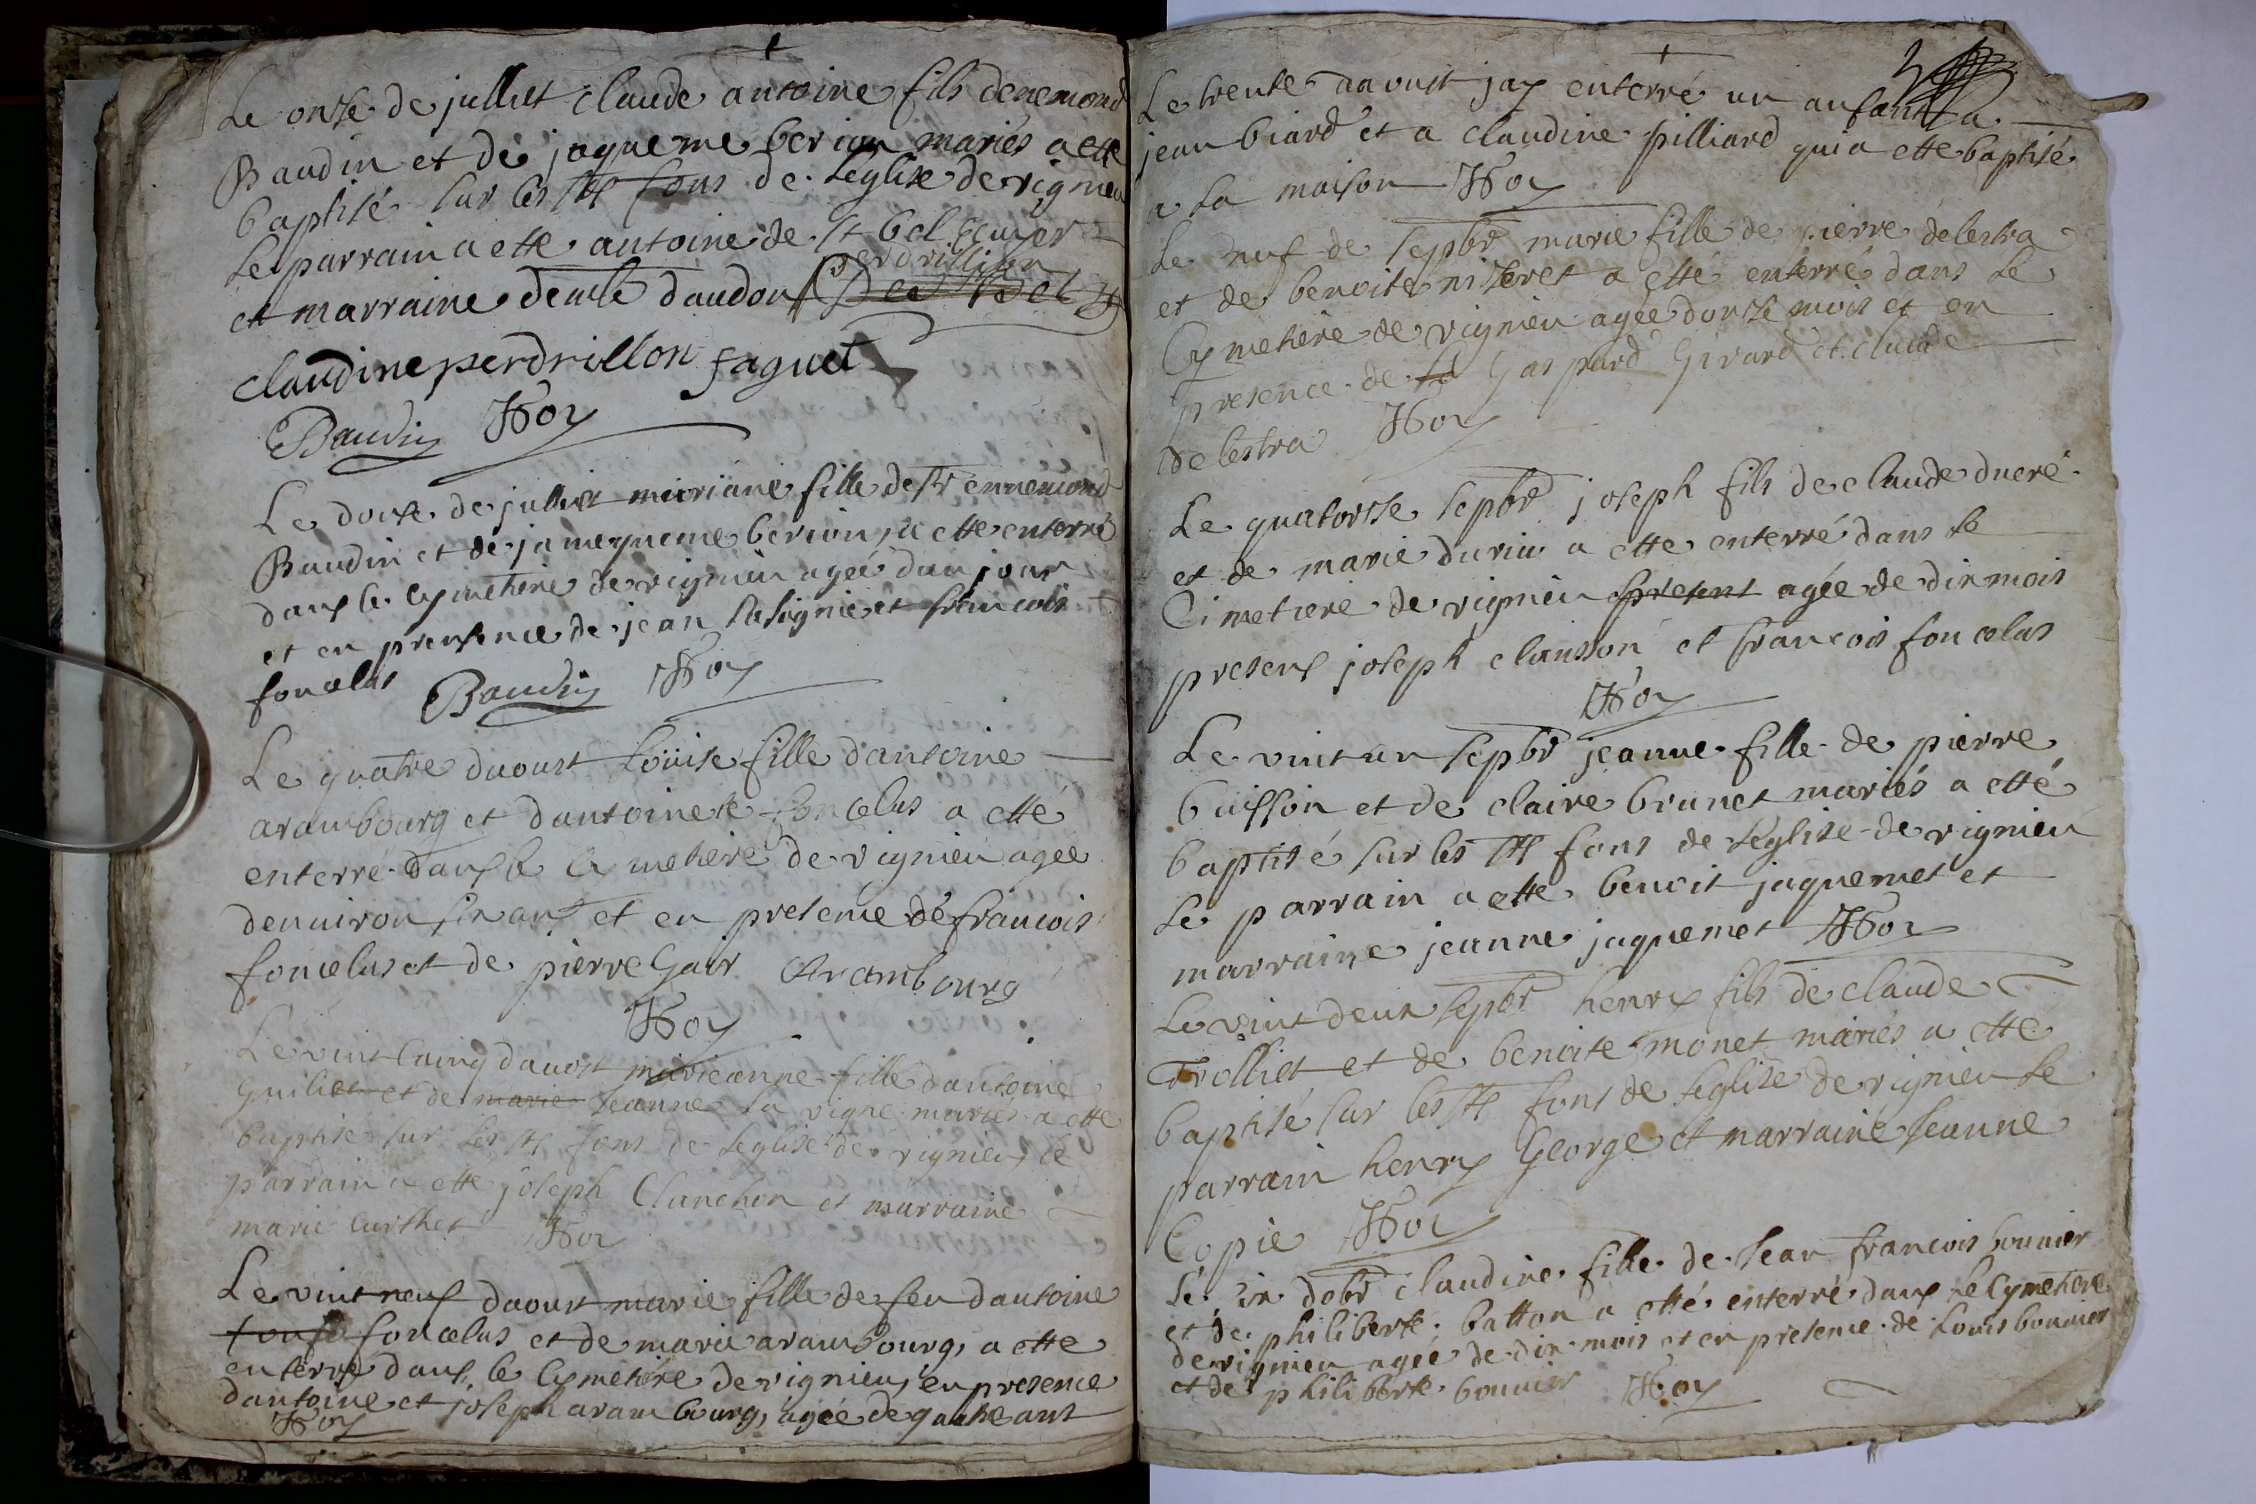 Le onse de julliet claude antoine fils denemond
Baudin et de jaqueme berion mariés a ette
baptisé sur les sts fons de leglise de vignieu
Le parrain a ette antoine de st bel Ecuyer
et marraine demlle claudine perdrillion
claudine perdrillon faguet
Baudin Roy
Le douse de julliet mariane fille de sr ennemond
Baudin et de jameyueme berion a ette enterré
dans le cymetiere de vignieu agée dun jour
et en presence de jean et francois
foncelas Baudin Roy
Le quatre daoust Loüise fille dantoine
arambourg et dantoinete foncelas a etté
enterré dans le cymetiere de vignieu agée
denuiron six ans et en presence de francois
foncelas et de pierre Gair Arambourg
Roy
Le vint cainq daoust marieanne fille dantoine
Guiliet et de marie Jeanne La vigne mariés a ette
baptisé sur les sts fons de leglise de vignieu le
parrain a ette joseph Clanchon et marraine
marie curthet Roy
Le vint neuf daoust marie fille de feu dantoine
foncelas et de marie arambourg a ette
enterré dans le cymetiere de vignieu en presence
dantoine et joseph arambourg, agée de quatre ans
Roy
Le trente daoust jay enterré un anfant a
jean biard et a claudine pilliard qui a ette baptisé
a La maison Roy
Le neuf de sepbre marie fille de pierre delestra
et de benoite niseret a etté enterré dans Le
Cymetiere de vignieu agée donse mois et en
presence de Gaspard Girard et claude
delestra Roy
Le quatorsse sepbre joseph fils de claude ducré
et de marie durieu a ette enterré dans Le
Cimetiere de vignieu present agée de dix mois
presens joseph clanson et francois foncelas
Roy
Le vint un sepbre jeanne fille de pierre
buisson et de claire brunet mariés a etté
baptisé sur les sts fons de leglise de vignieu
Le parrain a ette benoit jaquemet et
marraine jeanne jaquemet Roy
Le vint deux sepbre henry fils de claude
Trolliet et de benoite monet mariés a etté
baptisé sur les sts fons de leglise de vignieu Le
parrain henry George et marraine Jeanne
Copie Roy
Le six dobre claudine fille de Jean francois bonnier
et de philiberte batton a etté enterré dans le Cymetiere
de vignieu agée de dix mois et en presence de Louis bonnier
et de philiberte bonnier Roy